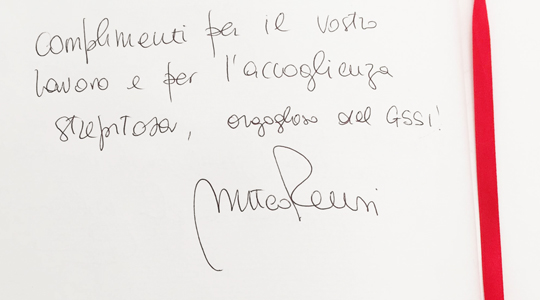 complimenti per il vostro
lavoro e per l'accoglienza
strepitosa, orgoglioso del GSSI!
Matteo Renzi